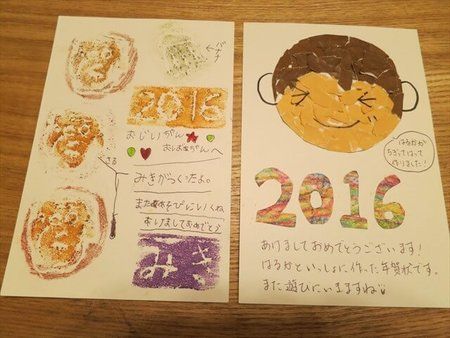 バナナ
2016
おじいちゃん
おばあちゃんへ
さる
みきがつくったよ。
またあそびにいくね
あけましておめでとう
みき
はるかが
ちぎってはって
作りました!
2016
あけましておめでとうございます!
はるかといっしょに作った年賀状です。
また遊びにいきますね